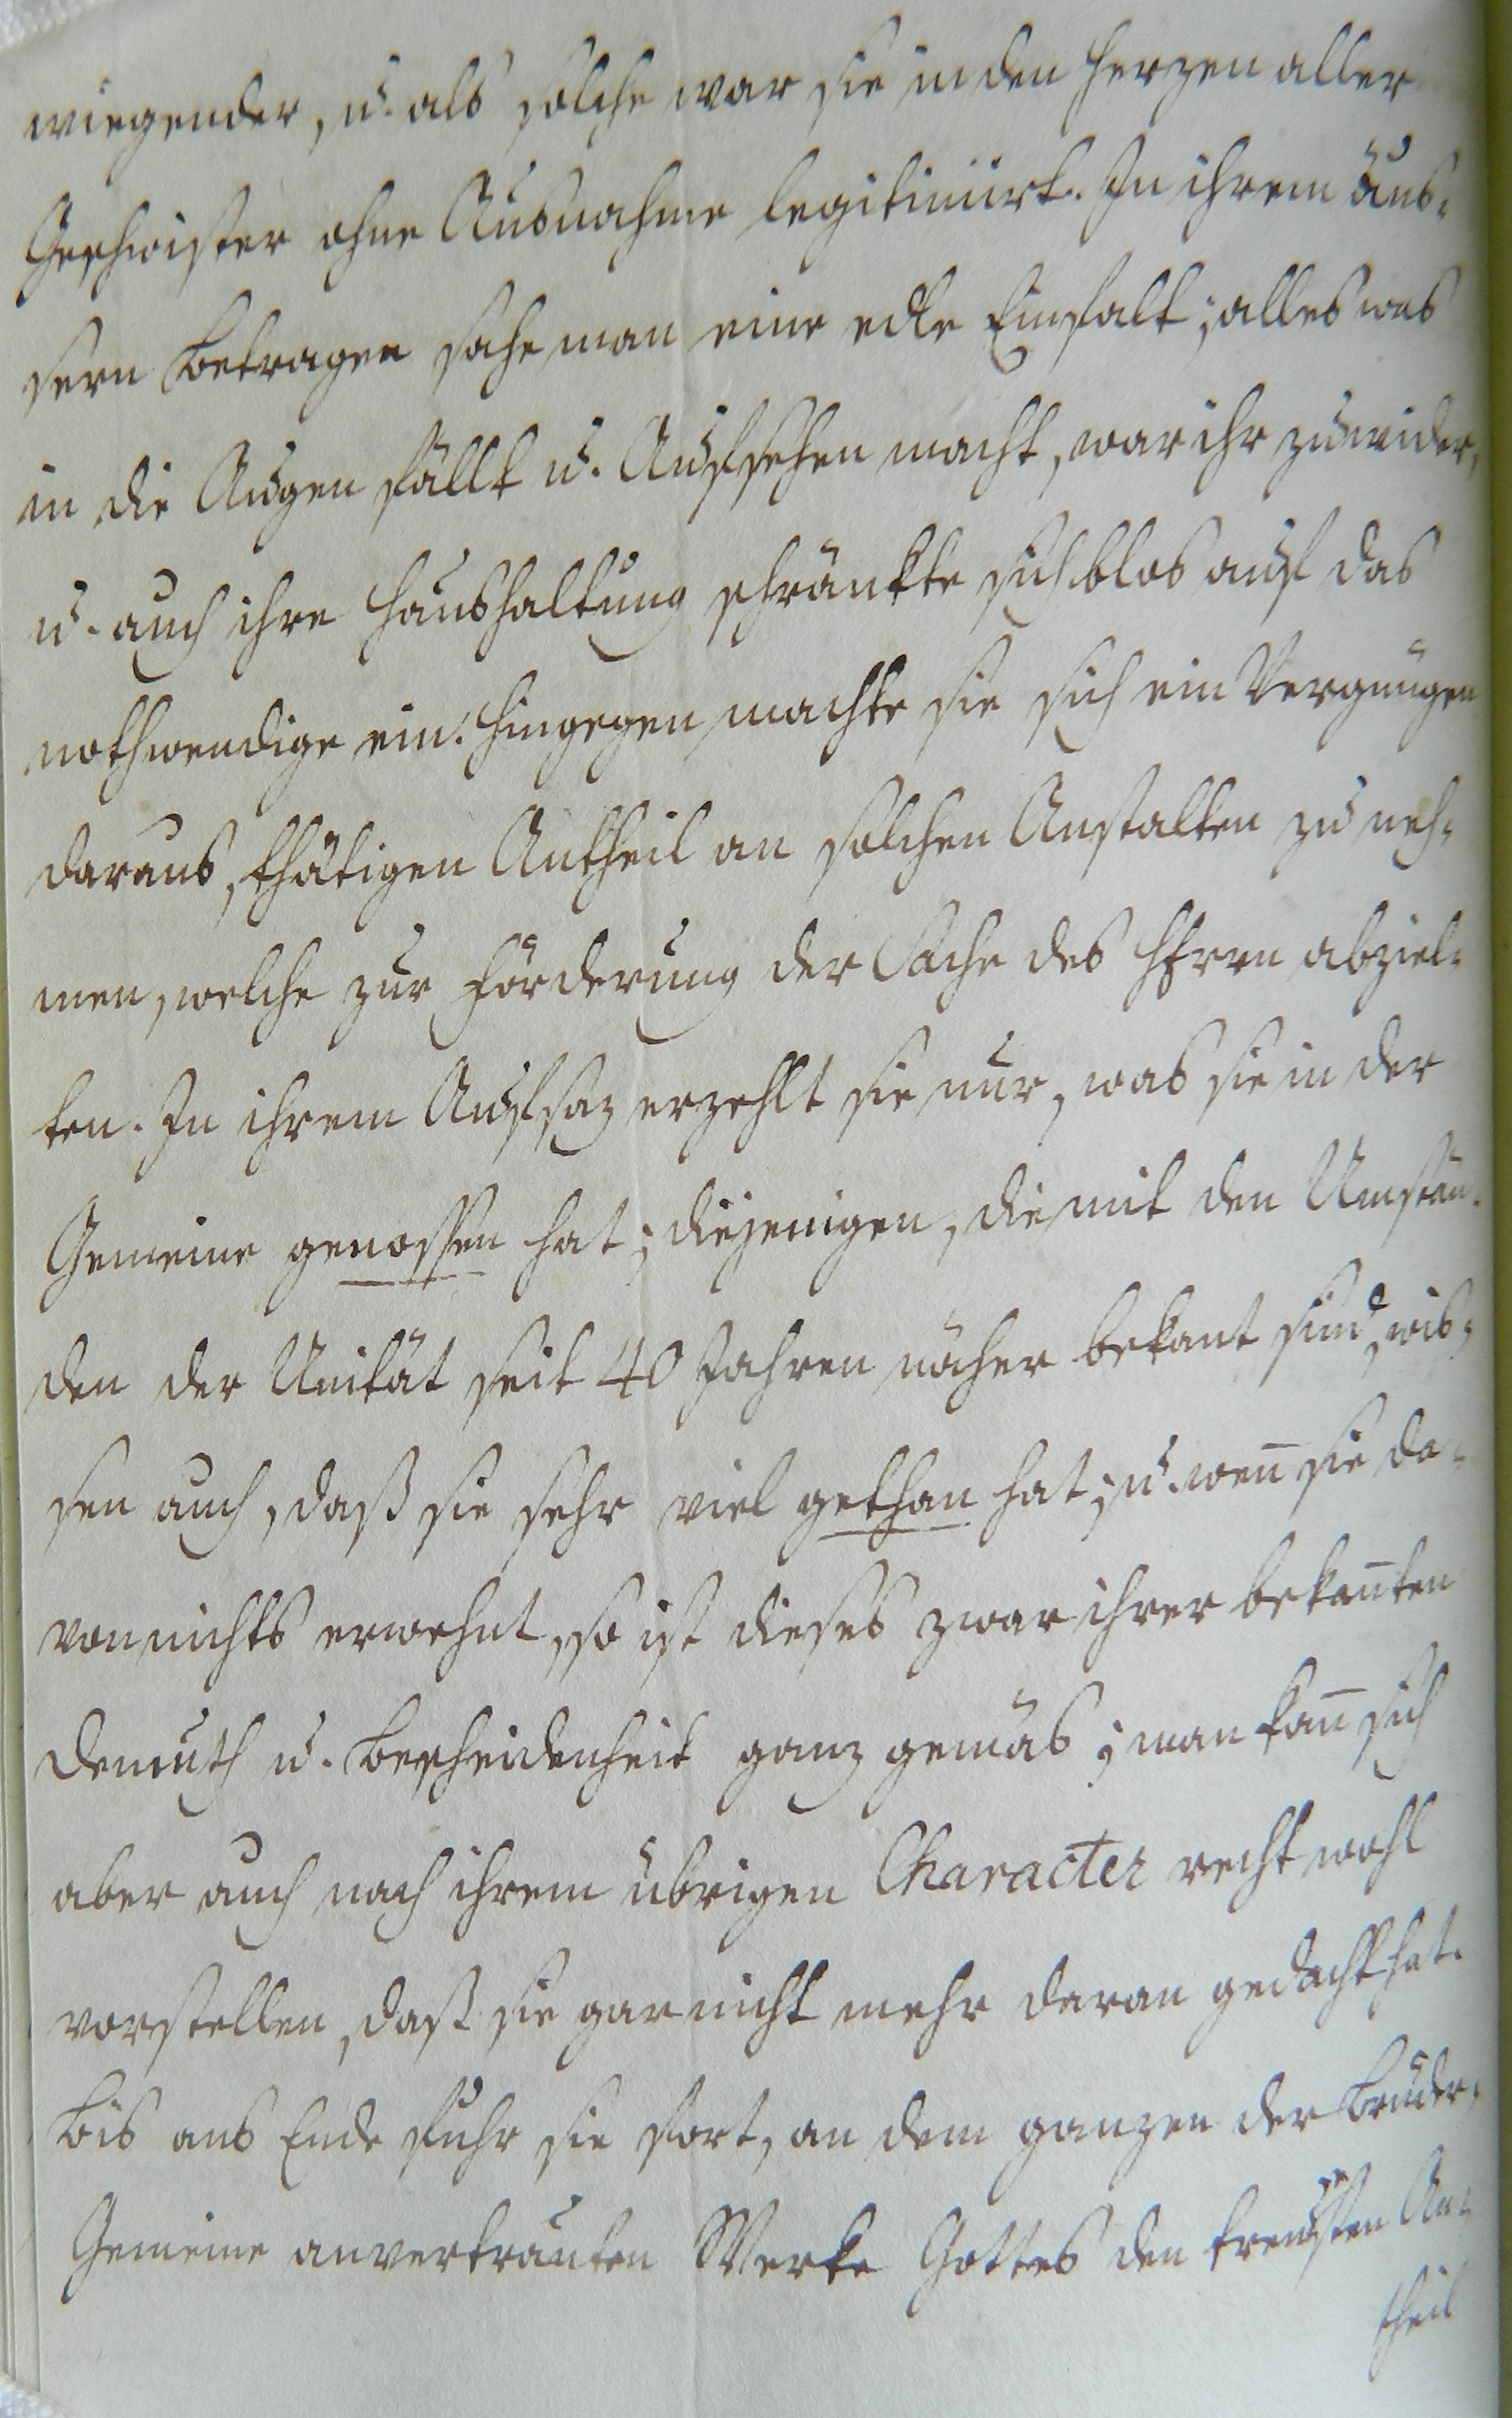 wiegender, u. als solche war sie in den Herzen aller
Geschwister ohne Ausnahme legitimirt. In ihrem äus-
sern Betragen sahe man eine edle Einfalt; alles was
in die Augen fällt u. Aufsehen macht, war ihr zuwider,
u. auch ihre Haushaltung schränkte sich blos auf das
nothwendige ein: hingegen machte sie sich ein Vergnügen
daraus, thätigen Antheil an solchen Anstalten zu neh-
men, welche zur Förderung der Sache des HErrn abziel-
ten. In ihrem Aufsaz erzehlt sie nur, was sie in der
Gemeine genossen hat; diejenigen, die mit den Umstän-
den der Unität seit 40 Jahren näher bekant sind, wis-
sen auch, daß sie sehr viel gethan hat; u. wen̄ sie da-
von nichts erwehnt, so ist dieses zwar ihrer bekan̄ten
Demuth u. Bescheidenheit ganz gemäs; man kan̄ sich
aber auch nach ihrem übrigen Character recht wohl
vorstellen, daß sie gar nicht mehr daran gedacht hat.
Bis ans Ende fuhr sie fort, an dem ganzen der Brüder-
Gemeine anvertrauten Werke Gottes den treusten An-
theil